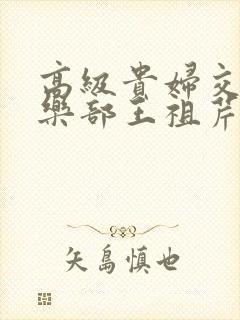 高級貴婦交
樂部王祖芹
矢島慎也